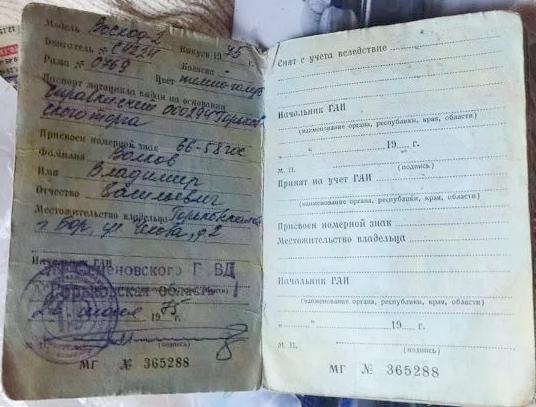 Модель Восход-2
Двигатель № Выпуск 1975 г.
Рама № Коляска
Цвет темно-голуб
Паспорт мотоцикла выдан на основании
справки счет 000294 Горьков
ского торга
Присвоен номерной знак 66-58 гос
Фамилия Волков
Имя Владимир
Отчество Васильевич
Местожительство владельца Горьковская
г. Бор, ул. Чехова, д. 2
Начальник ГАИ
Семеновского ГОВД
Горьковская область
1975 г.
М. П.
МГ № 365288
Снят с учета вследствие
Начальник ГАИ
(наименование органа, республики, края, области)
„ “ 19 г.
М. П. (подпись)
Принят на учет ГАИ
(наименование органа, республики, края, области)
Присвоен номерной знак
Местожительство владельца
Начальник ГАИ
(наименование органа, республики, края, области)
„ “ 19 г.
М. П. (подпись)
МГ № 365288